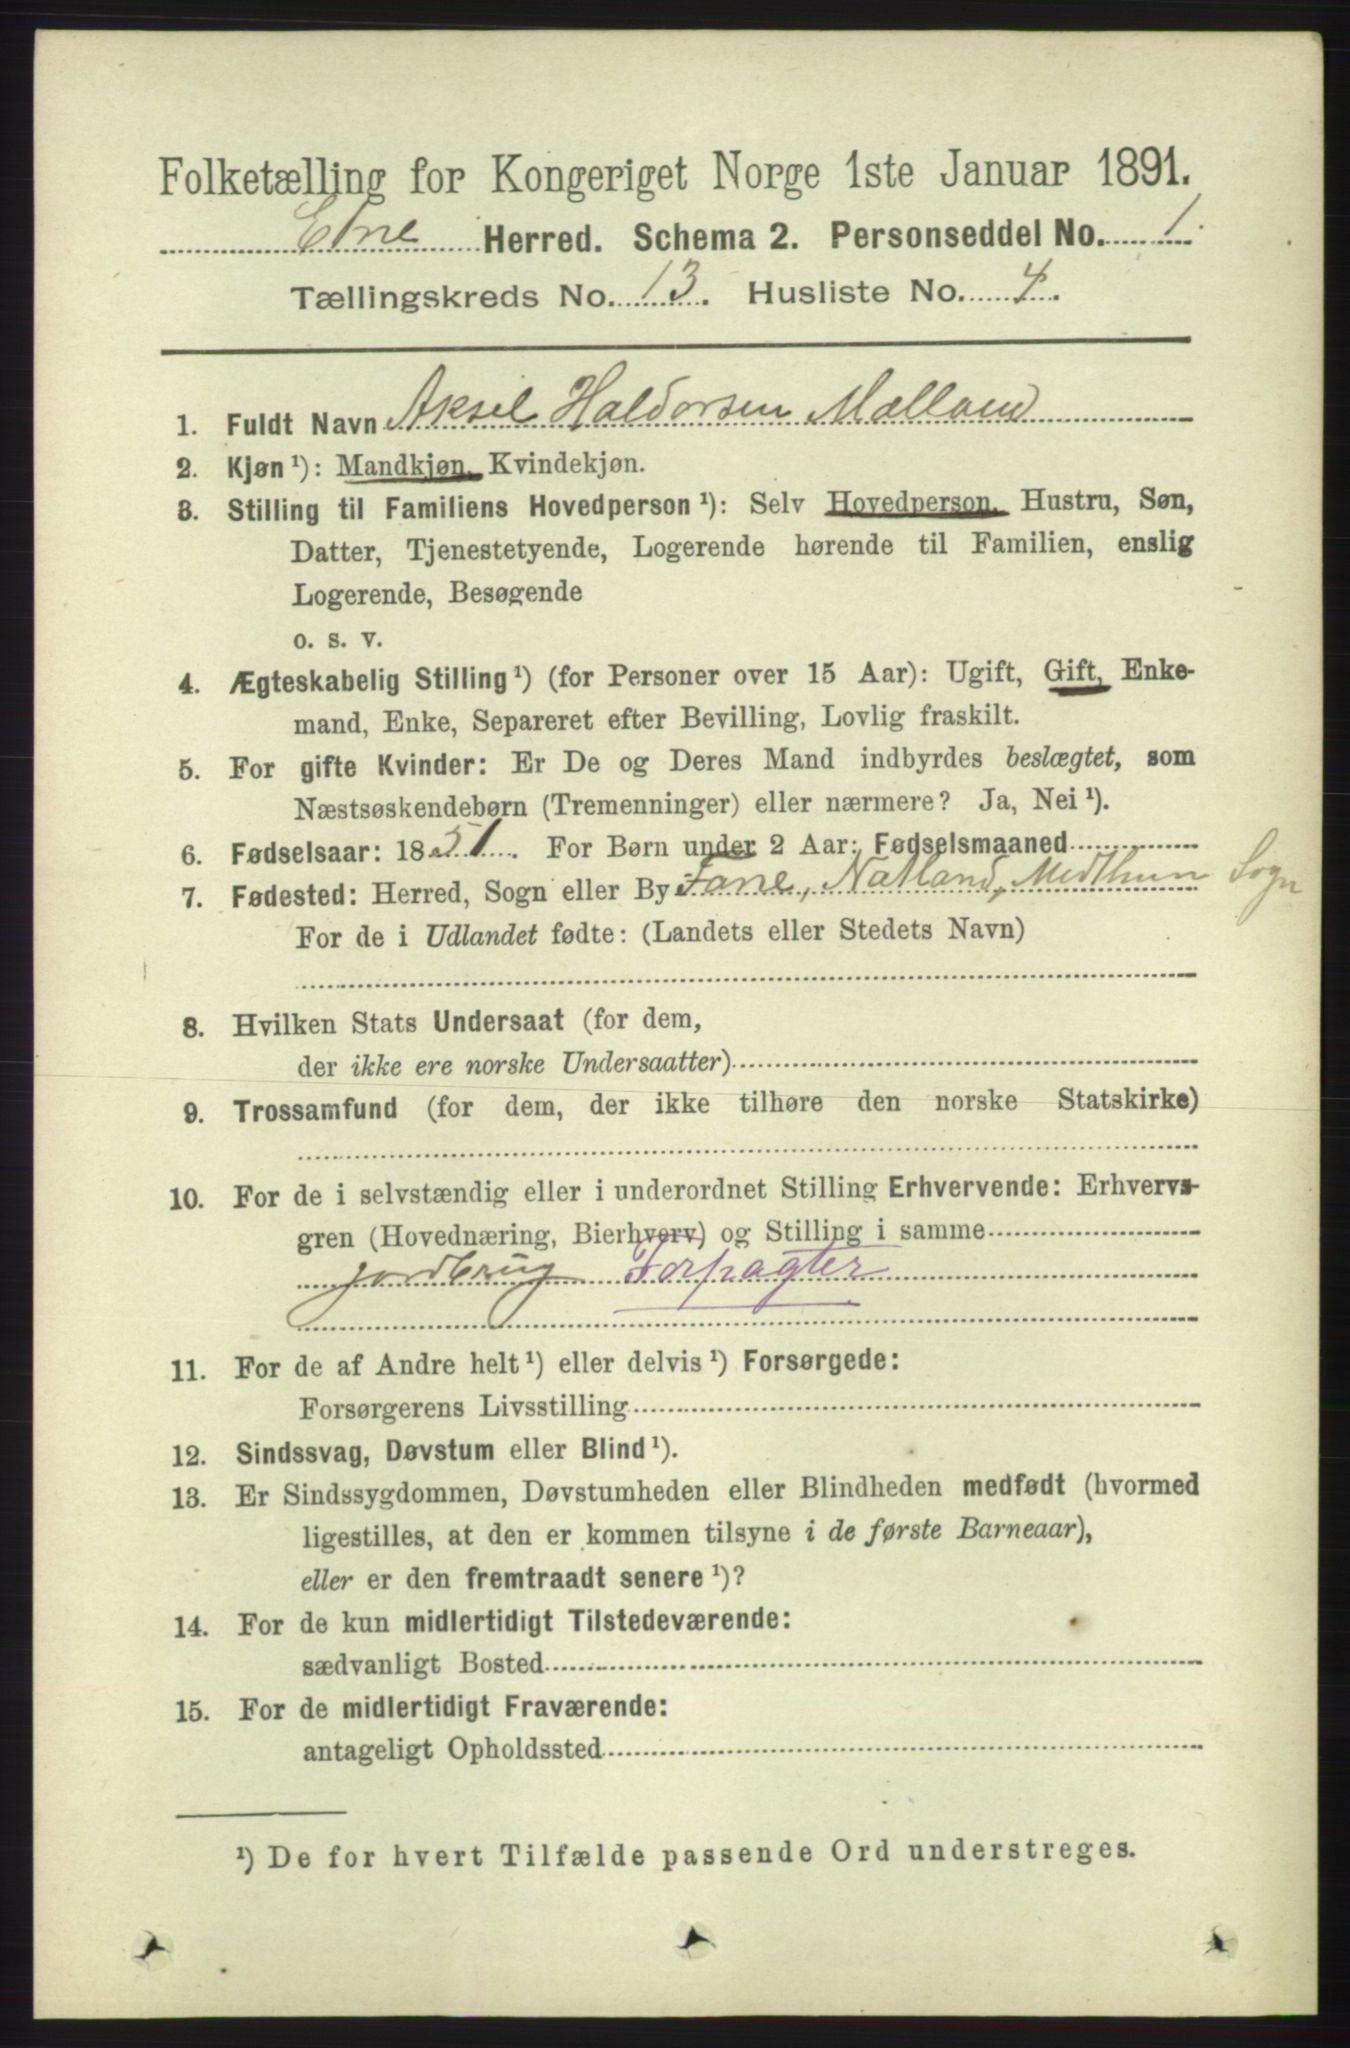 Folketælling for Kongeriget Norge 1ste Januar 1891.
Etne Herred. Schema 2. Personseddel No. 1.
Tællingskreds No. 13. Husliste No. 4.
1. Fuldt Navn Aksel Haldorsen Mælland
2. Kjøn ¹): Mandkjøn, Kvindekjøn.
3. Stilling til Familiens Hovedperson ¹): Selv Hovedperson, Hustru, Søn,
Datter, Tjenestetyende, Logerende hørende til Familien, enslig
Logerende, Besøgende
o. s. v.
4. Ægteskabelig Stilling ¹) (for Personer over 15 Aar): Ugift, Gift, Enke-
mand, Enke, Separeret efter Bevilling, Lovlig fraskilt.
5. For gifte Kvinder: Er De og Deres Mand indbyrdes beslægtet, som
Næstsøskendebørn (Tremenninger) eller nærmere? Ja, Nei ¹).
6. Fødselsaar: 1851. For Børn under 2 Aar: Fødselsmaaned
7. Fødested: Herred, Sogn eller By Fane, Natland, Midthun Sogn
For de i Udlandet fødte: (Landets eller Stedets Navn)
8. Hvilken Stats Undersaat (for dem,
der ikke ere norske Undersaatter)
9. Trossamfund (for dem, der ikke tilhøre den norske Statskirke)
10. For de i selvstændig eller i underordnet Stilling Erhvervende: Erhvervs-
gren (Hovednæring, Bierhverv) og Stilling i samme
jordbrug Forpagter
11. For de af Andre helt ¹) eller delvis ¹) Forsørgede:
Forsørgerens Livsstilling
12. Sindssvag, Døvstum eller Blind ¹).
13. Er Sindssygdommen, Døvstumheden eller Blindheden medfødt (hvormed
ligestilles, at den er kommen tilsyne i de første Barneaar),
eller er den fremtraadt senere ¹)?
14. For de kun midlertidigt Tilstedeværende:
sædvanligt Bosted
15. For de midlertidigt Fraværende:
antageligt Opholdssted
¹) De for hvert Tilfælde passende Ord understreges.